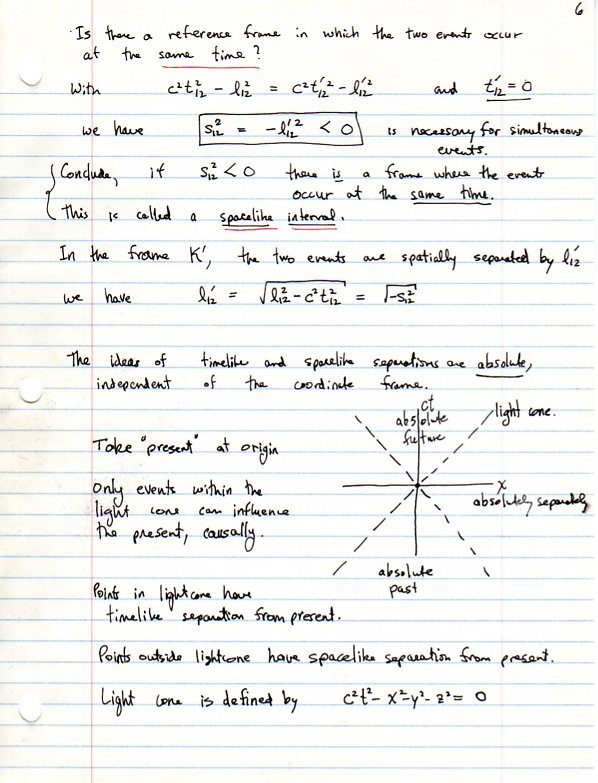 6
Is there a reference frame in which the two events occur
at the same time?
With c²t₁₂² - l₁₂² = c²t₁₂'² - l₁₂'² and t₁₂' = 0
we have S₁₂² = -l₁₂'² < 0 is necessary for simultaneous
events.
Conclude, if S₁₂² < 0 there is a frame where the events
occur at the same time.
This is called a spacelike interval.
In the frame K', the two events are spatially separated by l₁₂'
we have l₁₂' = √(l₁₂² - c²t₁₂²) = √(-S₁₂²)
The ideas of timelike and spacelike separations are absolute,
independent of the coordinate frame.
ct
absolute
future
light cone.
Take "present" at origin
x
absolutely separately
Only events within the
light cone can influence
the present, causally.
absolute
past
Points in lightcone have
timelike separation from present.
Points outside lightcone have spacelike separation from present.
Light cone is defined by c²t² - x² - y² - z² = 0